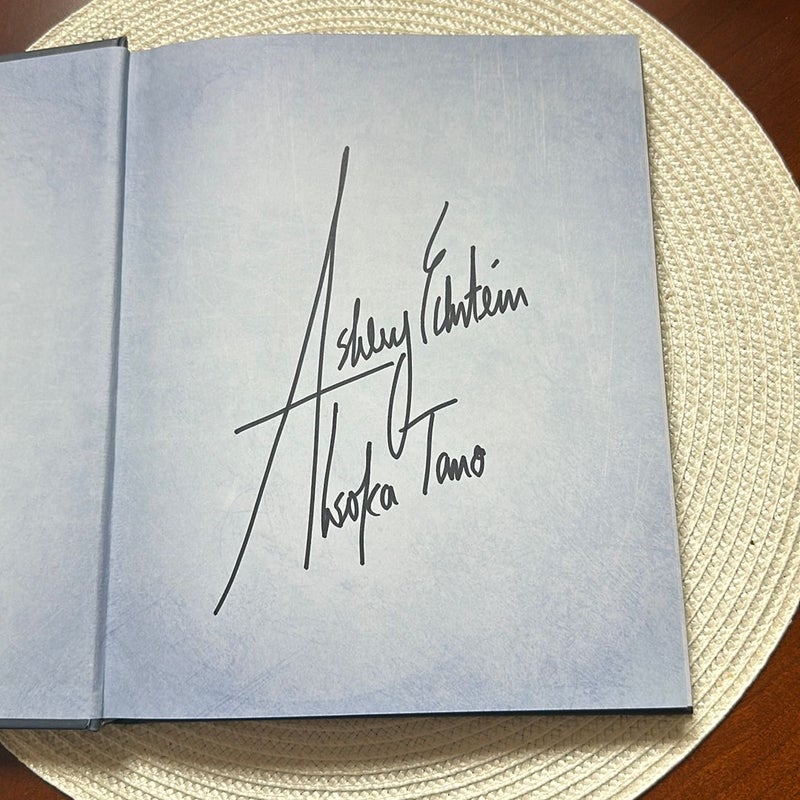 Ashley Eckstein
Ahsoka Tano